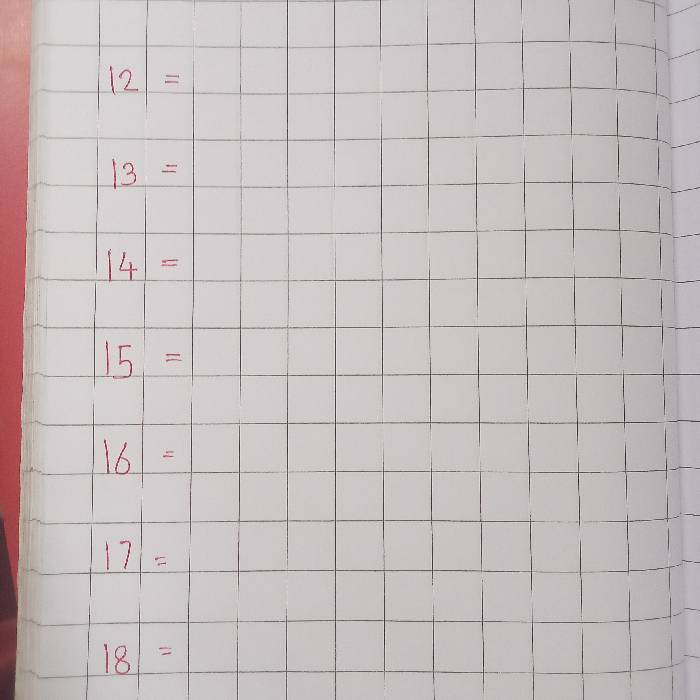 12 =
13 =
14 =
15 =
16 =
17 =
18 =